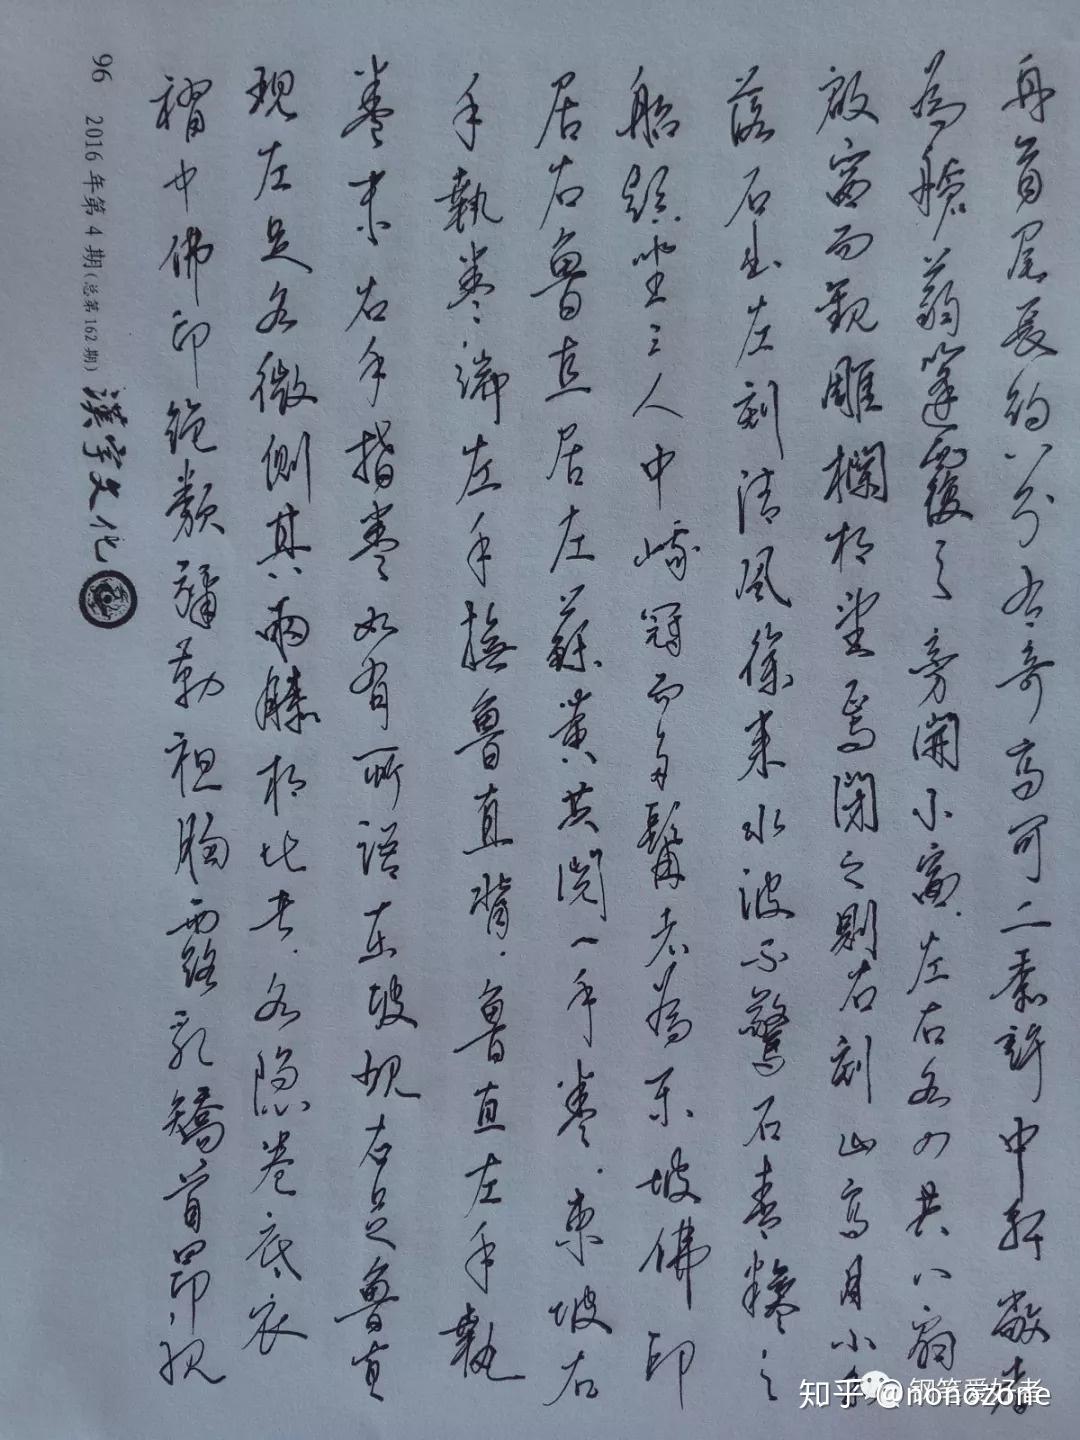 舟首尾長約八分有奇高可二黍許中軒敞者
為艙蒻篷覆之旁開小窗左右各四共八扇
啟窗而觀雕欄相望焉閉之則右刻山高月小水
落石出左刻清風徐來水波不驚石青糝之
船頭坐三人中峨冠而多髯者為東坡佛印
居右魯直居左蘇黃共閱一手卷東坡右
手執卷端左手撫魯直背魯直左手執
卷末右手指卷如有所語東坡現右足魯直
現左足各微側其兩膝相比者各隱卷底衣
褶中佛印絕類彌勒袒胸露乳矯首昂視
96 2016年第4期(总第162期) 漢字文化
钢笔爱好者
知乎 @nonozone